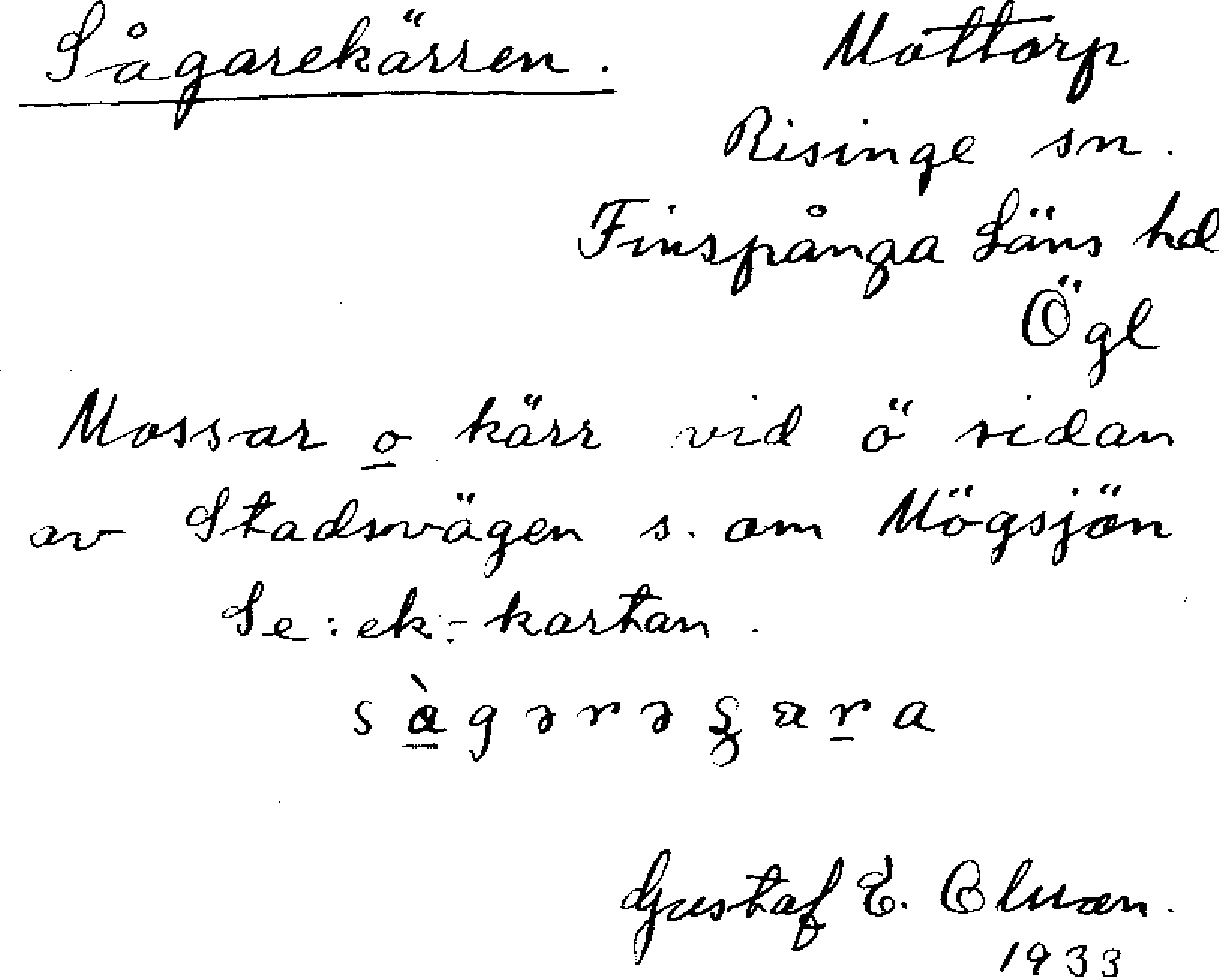 Sågarekärren. Mottorp
Risinge sn.
Finspånga Läns hd
Ögl
Mossar o kärr vid ö sidan
av Stadsvägen s. om Mögsjön
Se: ek:- kartan.
Gustaf E.
1933